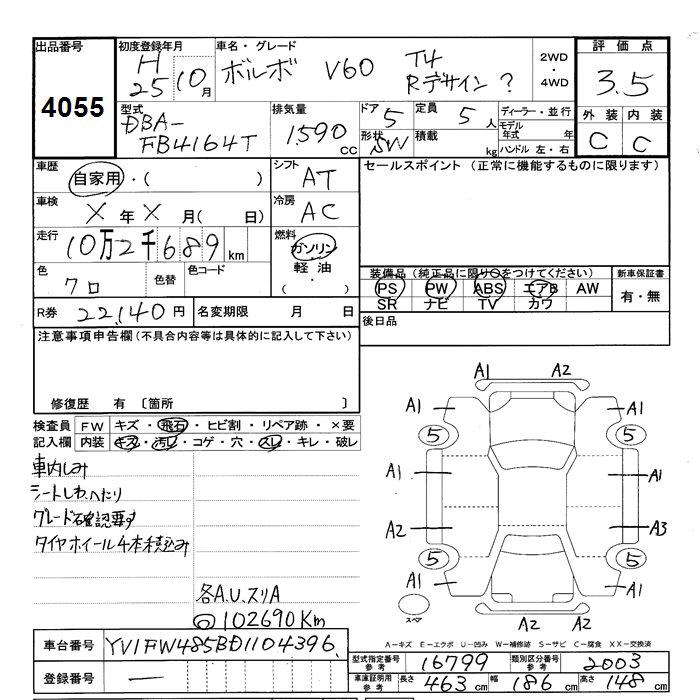 出品番号 4055
初度登録年月 H25 10月
車名・グレード ボルボ V60 T4 Rデザイン ?
2WD・4WD
評価点 3.5
外装 内装
C C
型式 DBA-FB4164T
排気量 1590 cc
ドア 5
形状 SW
定員 5人
積載 kg
ディーラー・並行
モデル年式 年
ハンドル 左・右
車歴 自家用・( )
シフト AT
セールスポイント (正常に機能するものに限ります)
車検 X年X月( 日)
冷房 AC
走行 10万2千689 km
燃料 ガソリン 軽油 ・( )
色 クロ 色替 色コード
装備品 (純正品に限り○をつけてください)
PS PW ABS エアB AW
SR ナビ TV カワ
新車保証書
有・無
R券 22,140円
名変期限 月 日
後日品
注意事項申告欄(不具合内容等は具体的に記入して下さい)
修復歴 有 〔箇所 〕
検査員記入欄
FW キズ・飛石・ヒビ割・リペア跡・×要
内装 キズ・汚レ・コゲ・穴・スレ・キレ・破レ
車内しみ
シートしわ,へたり
グレード確認要す
タイヤホイール4本積込み
各A.U.スリA
◎102690Km
A1 A2
A1 A1
5 5
A1 A1
A2 A3
5 5
A1 A1
スペア
A2 A2
A-キズ E-エクボ U-凹み W-補修跡 S-サビ C-腐食 XX-交換済
車台番号 YV1FW485BD1104396
登録番号 —
型式指定番号 参考 16799
類別区分番号 参考 2003
車庫証明用 参考 長さ 463cm 幅 186cm 高さ 148cm